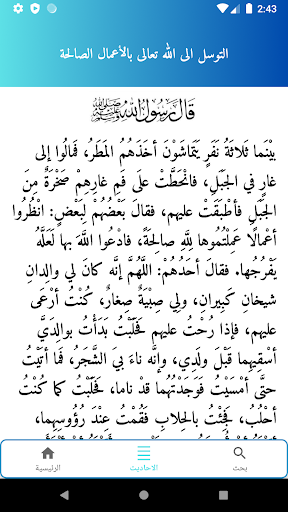 2:43
التوسل الى الله تعالى بالأعمال الصالحة
قَالَ رَسُولُ اللهِ ﷺ
بيْنَما ثَلاثَةُ نَفَرٍ يَتَماشَوْنَ أخَذَهُمُ المَطَرُ، فَمالُوا إلى
غارٍ في الجَبَلِ، فانْحَطَّتْ علَى فَمِ غارِهِمْ صَخْرَةٌ مِنَ
الجَبَلِ فأطْبَقَتْ عليهم، فقالَ بَعْضُهُمْ لِبَعْضٍ: انْظُرُوا
أعْمالًا عَمِلْتُمُوها لِلَّهِ صالِحَةً، فادْعُوا اللَّهَ بها لَعَلَّهُ
يَفْرُجُها. فقالَ أحَدُهُمْ: اللَّهُمَّ إنَّه كانَ لي والِدانِ
شيخانِ كَبِيرانِ، ولِي صِبْيَةٌ صِغارٌ، كُنْتُ أرْعَى
عليهم، فإذا رُحْتُ عليهم فَحَلَبْتُ بَدَأْتُ بوالِدَيَّ
أسْقِيهِما قَبْلَ ولَدِي، وإنَّه ناءَ بيَ الشَّجَرُ، فَما أتَيْتُ
حتَّى أمْسَيْتُ فَوَجَدْتُهُما قدْ ناما، فَحَلَبْتُ كما كُنْتُ
أحْلُبُ، فَجِئْتُ بالحِلابِ فَقُمْتُ عِنْدَ رُؤُوسِهِما،
الرئيسية
الاحاديث
بحث